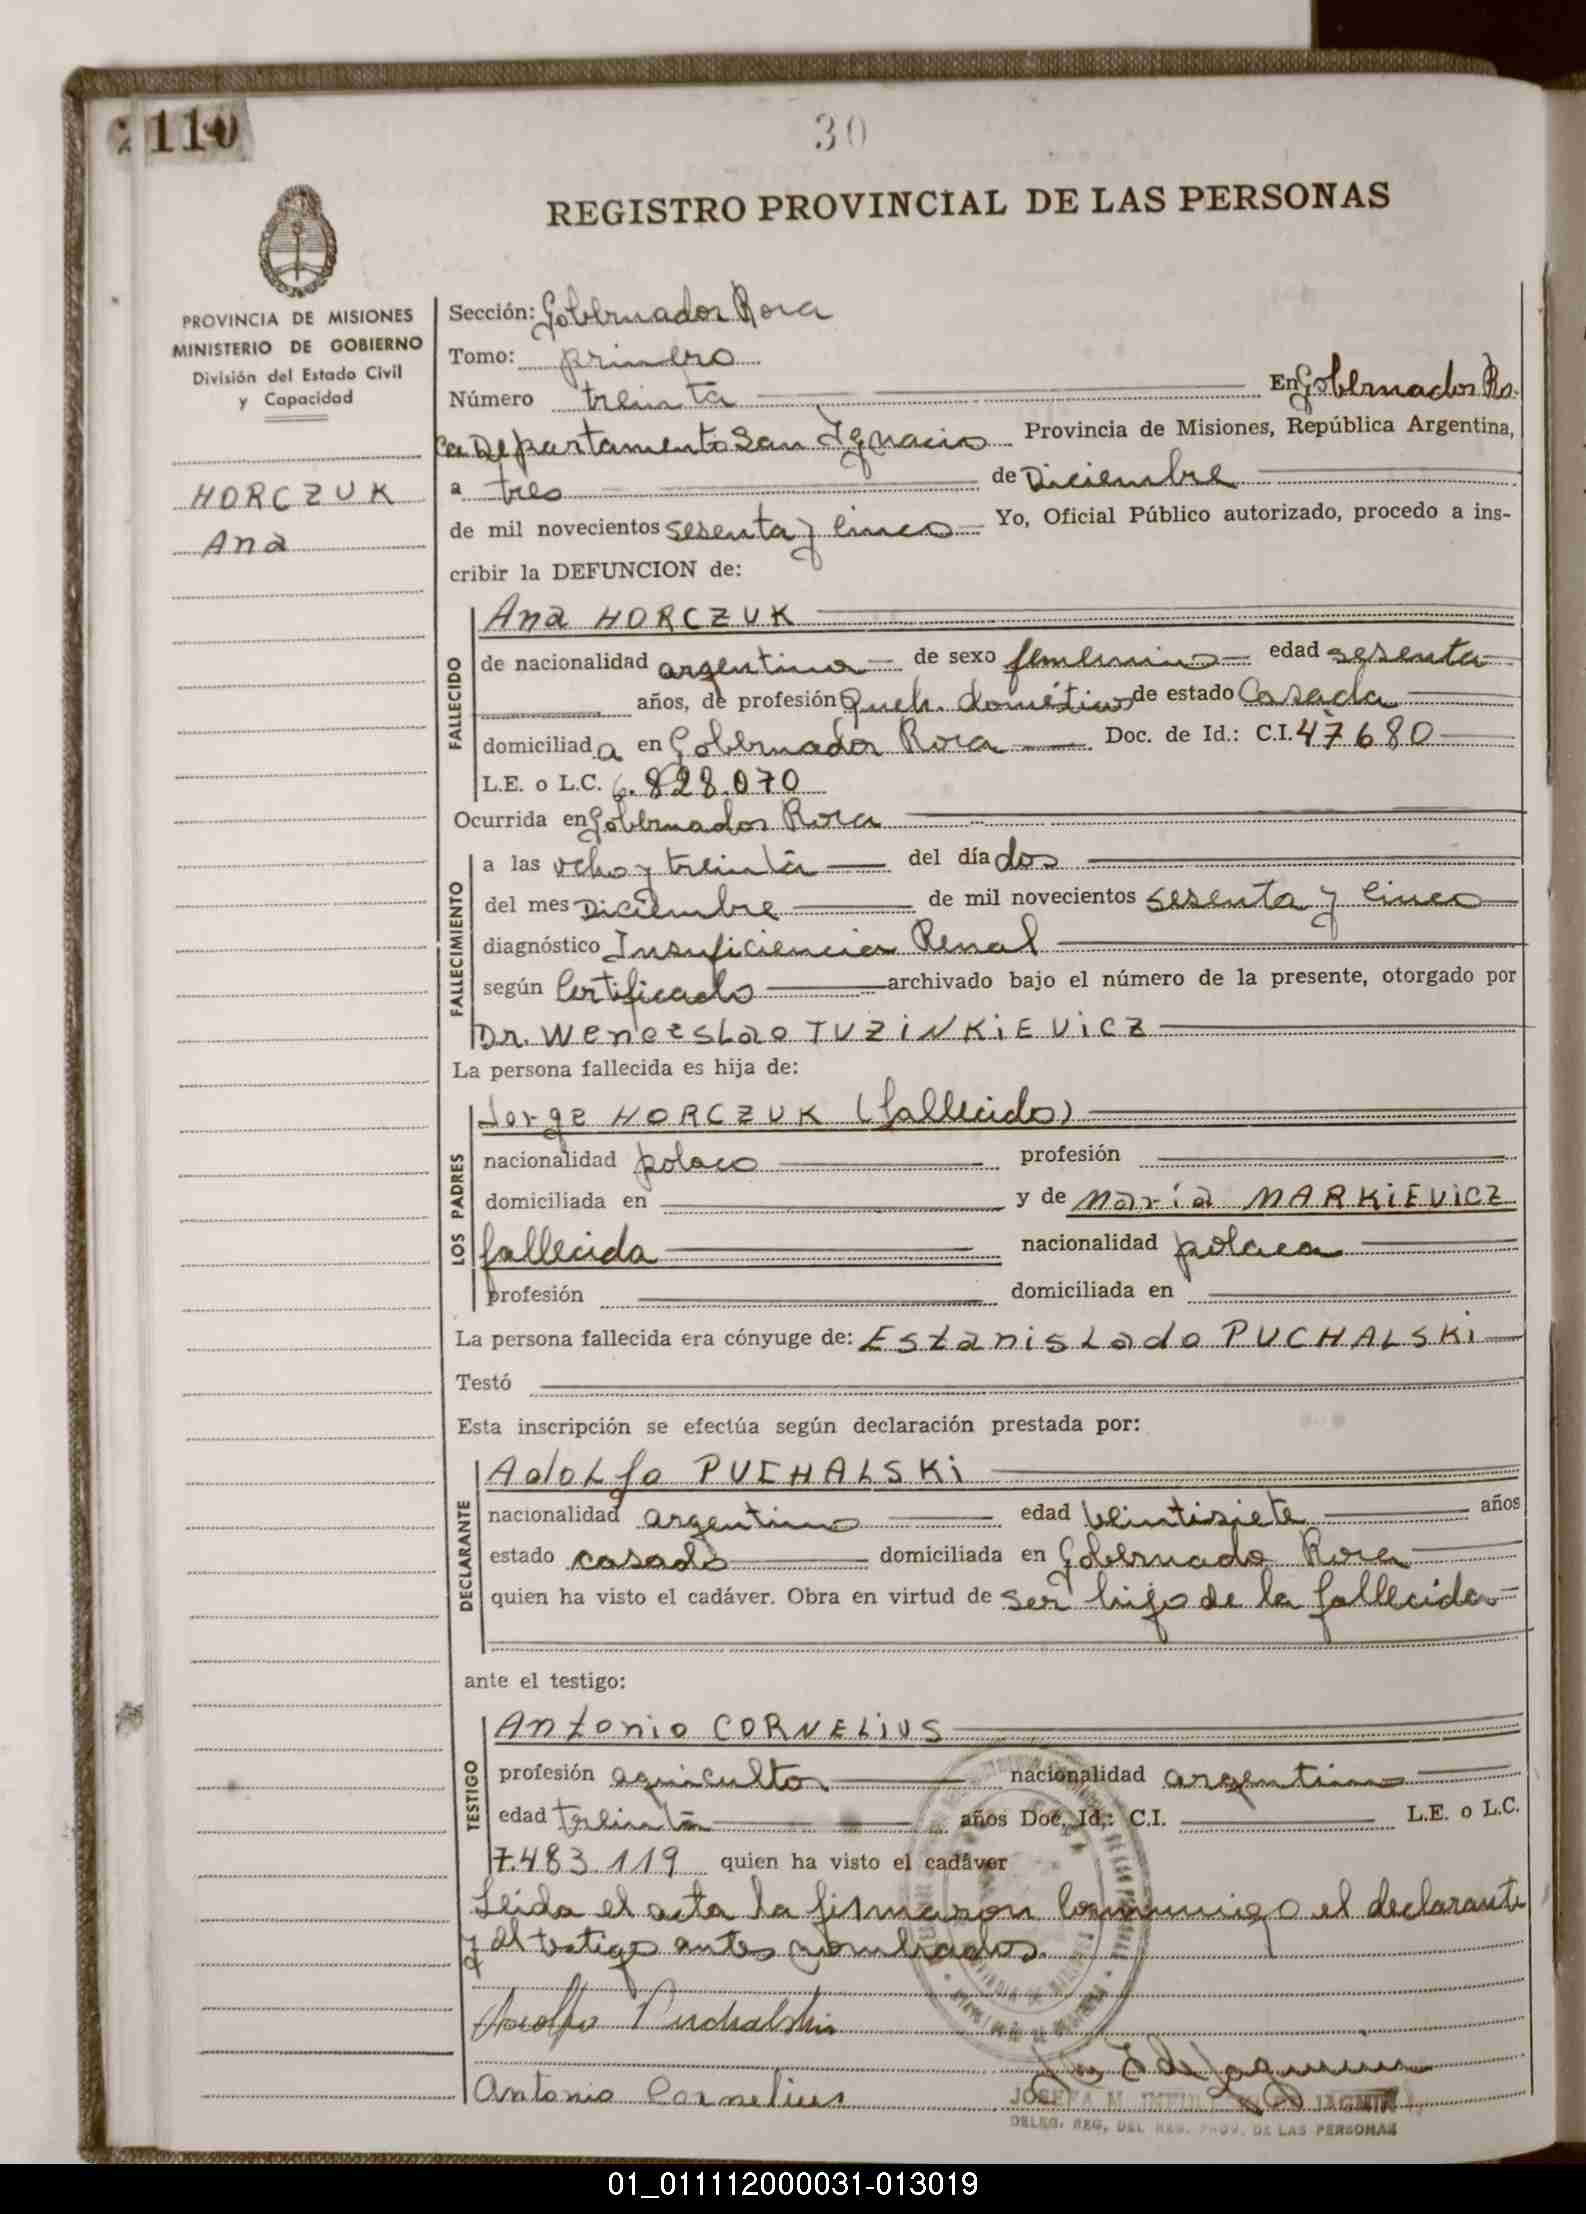 110
30
REGISTRO PROVINCIAL DE LAS PERSONAS
PROVINCIA DE MISIONES
MINISTERIO DE GOBIERNO
División del Estado Civil
y Capacidad
HORCZUK
Ana
Sección: Gobernador Roca
Tomo: primero
Número treinta En Gobernador Ro-
ca Departamento San Ignacio Provincia de Misiones, República Argentina,
a tres de Diciembre
de mil novecientos sesenta y cinco Yo, Oficial Público autorizado, procedo a ins-
cribir la DEFUNCION de:
FALLECIDO
Ana HORCZUK
de nacionalidad argentina de sexo femenino edad sesenta
años, de profesión Queh. domésticos de estado Casada
domiciliada en Gobernador Roca Doc. de Id.: C.I. 47680
L.E. o L.C. 6.828.070
Ocurrida en Gobernador Roca
FALLECIMIENTO
a las ocho y treinta del día dos
del mes Diciembre de mil novecientos sesenta y cinco
diagnóstico Insuficiencia Renal
según Certificado archivado bajo el número de la presente, otorgado por
Dr. Wenceslao TUZINKIEVICZ
La persona fallecida es hija de:
LOS PADRES
Jorge HORCZUK (fallecido)
nacionalidad polaco profesión
domiciliada en y de María MARKIEVICZ
fallecida nacionalidad polaca
profesión domiciliada en
La persona fallecida era cónyuge de: Estanislado PUCHALSKI
Testó
Esta inscripción se efectúa según declaración prestada por:
DECLARANTE
Adolfo PUCHALSKI
nacionalidad argentino edad veintisiete años
estado casado domiciliada en Gobernado Roca
quien ha visto el cadáver. Obra en virtud de ser hijo de la fallecida
ante el testigo:
TESTIGO
Antonio CORNELIUS
profesión agricultor nacionalidad argentino
edad treinta años Doc. Id.: C.I. L.E. o L.C.
7.483.119 quien ha visto el cadáver
Leida el acta la firmaron conmigo el declarante
y el testigo antes nombrados.
Adolfo Puchalski
Antonio Cornelius
JOSEFA M.
DELEG. REG. DEL REG. PROV. DE LAS PERSONAS
01_011112000031-013019